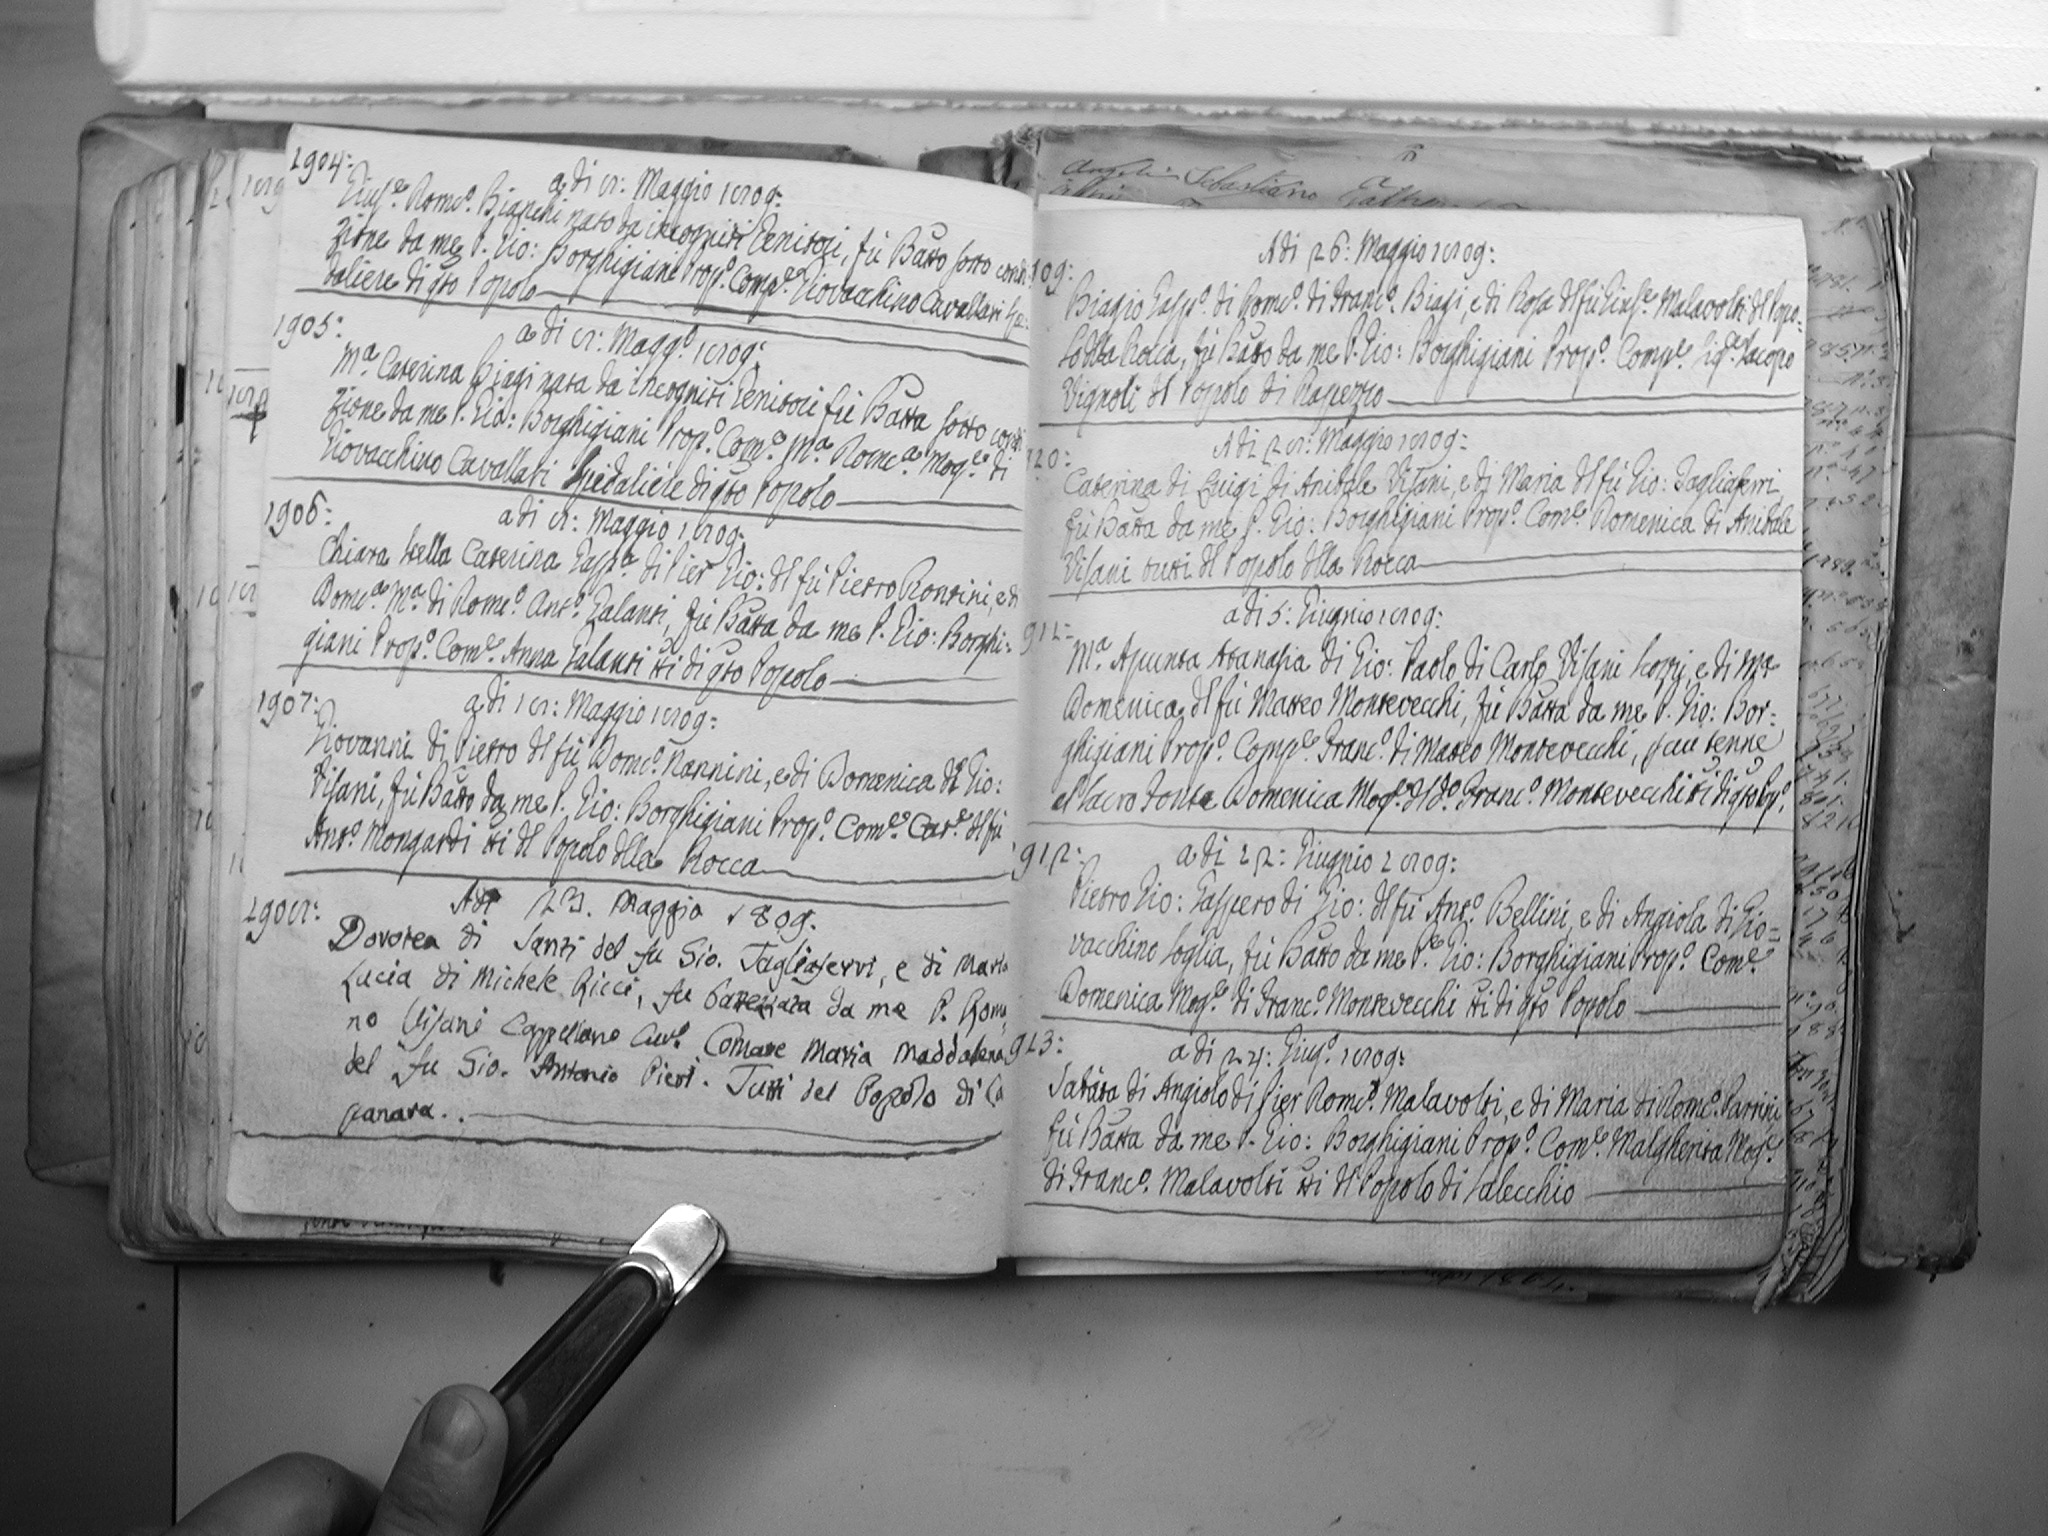 1904:
a di 8: Maggio 1809:
Gius.e Dom.co Bianchi nato da incogniti Genitori, fù Batto sotto condi-
zione da me P. Gio: Borghigiani Prop.o Comp.e Giovacchino Cavallari Spe-
daliere di qto Popolo
1905:
a di 8: Magg.o 1809:
M.a Caterina Biagi nata da incogniti Genitori fù Batta sotto condi-
zione da me P. Gio: Borghigiani Prop.o Com.e M.a Dom.ca Mog.e di
Giovacchino Cavallari Spedaliere di qto Popolo
1906:
a di 8: Maggio 1809:
Chiara Stella Caterina Gasp.a di Pier Gio: dl fù Pietro Rontini, e di
Dom.ca M.a di Dom.co Ant.o Galanti, fù Batta da me P. Gio: Borghi-
giani Prop.o Com.e Anna Galanti tti di qto Popolo
1907:
a di 18: Maggio 1809:
Giovanni di Pietro dl fù Dom.co Nannini, e di Domenica dl Gio:
Visani, fù Batto da me P. Gio: Borghigiani Prop.o Com.e Cat.e dl fù
Ant.o Mongardi tti dl Popolo dlla Rocca
1908:
Adi 23. Maggio 1809.
Dorotea di Santi del fu Gio. Tagliaferri, e di Maria
Lucia di Michele Ricci, fu battezzata da me P. Romu
no Visani Cappellano Cur.o Comare Maria Maddalena
del fu Gio. Antonio Pieri. Tutti del Popolo di Ca
panara..
909:
A di 26: Maggio 1809:
Biagio Gasp.o di Dom.co di Franc.o Biagi, e di Rosa dl fù Gius.e Malavolti dl Popo-
lo dlla Rocca, fù Batto da me P. Gio: Borghigiani Prop.o Comp.e Sig.e Jacopo
Vignoli dl Popolo di Rapezzo
920:
A di 28: Maggio 1809:
Caterina di Luigi di Anibale Visani, e di Maria dl fù Gio: Tagliaferri,
fù Batta da me P. Gio: Borghigiani Prop.o Com.e Domenica di Anibale
Visani tutti dl Popolo dlla Rocca
911:
a di 5: Giugnio 1809:
M.a Asunta Attanasia di Gio: Paolo di Carlo Visani e di Ma
Domenica dl fù Matteo Montevecchi, fù Batta da me P. Gio: Bor-
ghigiani Prop.o Comp.e Franc.o di Matteo Montevecchi, tenne
al Sacro Fonte Domenica Mog.e dl do Franc.o Montevecchi tti di qto Pop.o
912:
a di 12: Giugnio 1809:
Pietro Gio: Gaspero di Gio: dl fù Ant.o Bellini, e di Angiola di Gio-
vacchino Soglia, fù Batto da me P.e Gio: Borghigiani Prop.o Com.e
Domenica Mog.e di Franc.o Montevecchi tti di qto Popolo
913:
a di 24: Giug.o 1809:
Sabata di Angiolo di Pier Dom.co Malavolti, e di Maria di Dom.co Parrini
fù Batta da me P. Gio: Borghigiani Prop.o Com.e Malgherita Mog.e
di Franc.o Malavolti tti dl Popolo di Salecchio